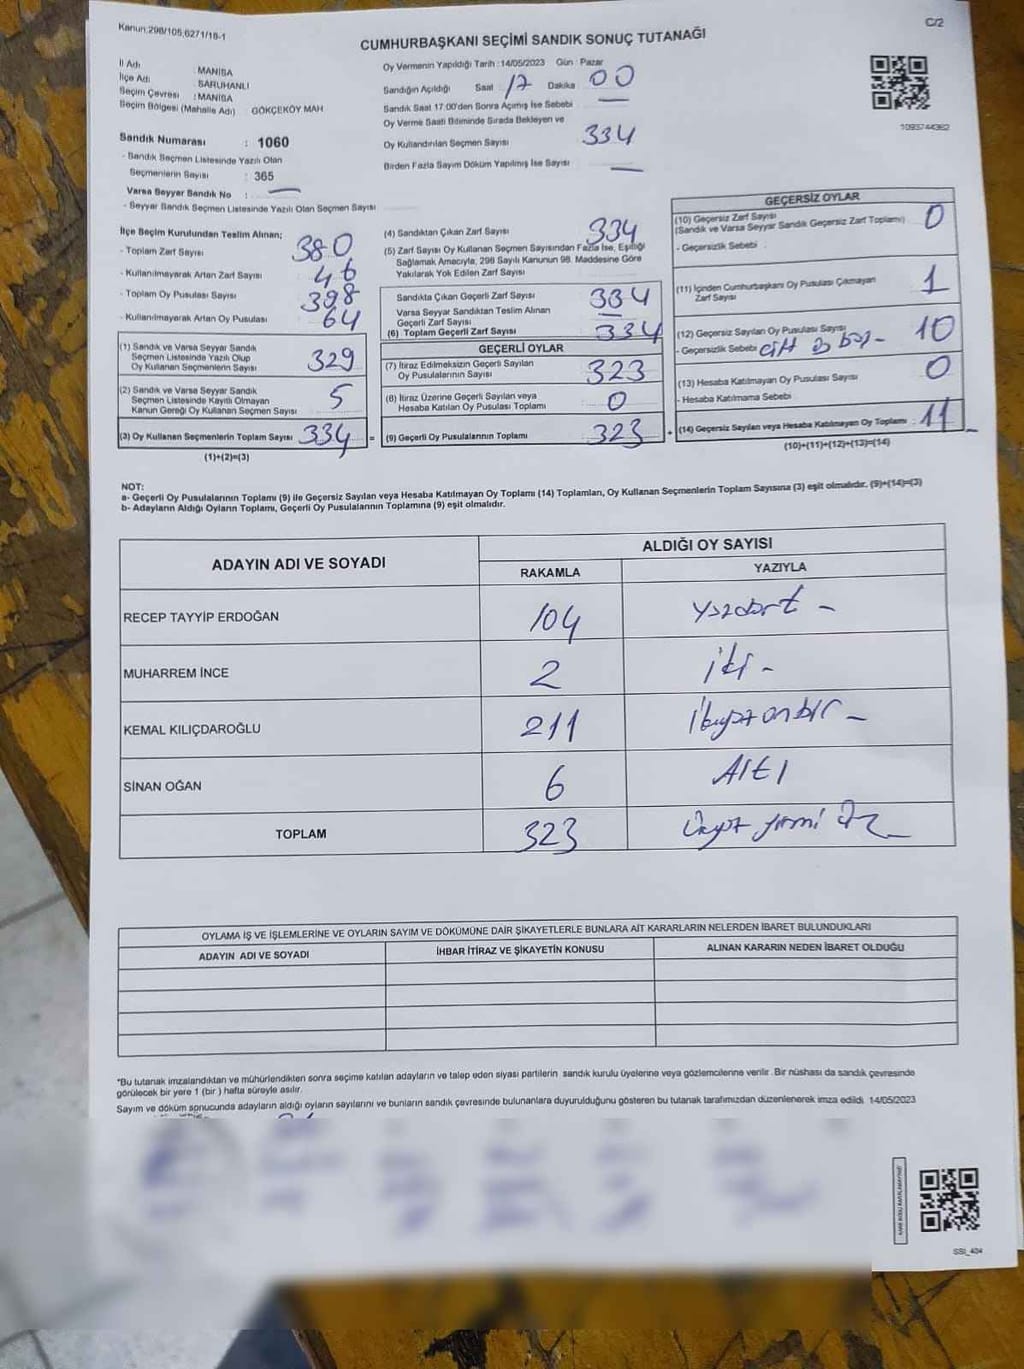 Kanun:298/105,6271/18-1
C/2
CUMHURBAŞKANI SEÇİMİ SANDIK SONUÇ TUTANAĞI
İl Adı : MANİSA
İlçe Adı : SARUHANLI
Seçim Çevresi : MANİSA
Seçim Bölgesi (Mahalle Adı) : GÖKÇEKÖY MAH
Sandık Numarası : 1060
- Sandık Seçmen Listesinde Yazılı Olan
Seçmenlerin Sayısı : 365
Varsa Seyyar Sandık No : —
- Seyyar Sandık Seçmen Listesinde Yazılı Olan Seçmen Sayısı
Oy Vermenin Yapıldığı Tarih :14/05/2023 Gün : Pazar
Sandığın Açıldığı Saat : 17 Dakika : 00
Sandık Saat 17:00'den Sonra Açımış İse Sebebi —
Oy Verme Saati Bitiminde Sırada Bekleyen ve
Oy Kullandırılan Seçmen Sayısı 334
Birden Fazla Sayım Döküm Yapılmış İse Sayısı —
1093744362
İlçe Seçim Kurulundan Teslim Alınan;
- Toplam Zarf Sayısı 380
- Kullanılmayarak Artan Zarf Sayısı 46
- Toplam Oy Pusulası Sayısı 398
- Kullanılmayarak Artan Oy Pusulası 64
(1) Sandık ve Varsa Seyyar Sandık
Seçmen Listesinde Yazılı Olup
Oy Kullanan Seçmenlerin Sayısı 329
(2) Sandık ve Varsa Seyyar Sandık
Seçmen Listesinde Kayıtlı Olmayan
Kanun Gereği Oy Kullanan Seçmen Sayısı 5
(3) Oy Kullanan Seçmenlerin Toplam Sayısı 334
(1)+(2)=(3)
=
(4) Sandıktan Çıkan Zarf Sayısı 334
(5) Zarf Sayısı Oy Kullanan Seçmen Sayısından Fazla İse, Eşitliği
Sağlamak Amacıyla, 298 Sayılı Kanunun 98. Maddesine Göre
Yakılarak Yok Edilen Zarf Sayısı
Sandıkta Çıkan Geçerli Zarf Sayısı 334
Varsa Seyyar Sandıktan Teslim Alınan
Geçerli Zarf Sayısı —
(6) Toplam Geçerli Zarf Sayısı 334
GEÇERLİ OYLAR
(7) İtiraz Edilmeksizin Geçerli Sayılan
Oy Pusulalarının Sayısı 323
(8) İtiraz Üzerine Geçerli Sayılan veya
Hesaba Katılan Oy Pusulası Toplamı 0
(9) Geçerli Oy Pusulalarının Toplamı 323
+
GEÇERSİZ OYLAR
(10) Geçersiz Zarf Sayısı
(Sandık ve Varsa Seyyar Sandık Geçersiz Zarf Toplamı) 0
- Geçersizlik Sebebi :
(11) İçinden Cumhurbaşkanı Oy Pusulası Çıkmayan
Zarf Sayısı 1
(12) Geçersiz Sayılan Oy Pusulası Sayısı 10
- Geçersizlik Sebebi
(13) Hesaba Katılmayan Oy Pusulası Sayısı 0
- Hesaba Katılmama Sebebi
(14) Geçersiz Sayılan veya Hesaba Katılmayan Oy Toplamı : 11
(10)+(11)+(12)+(13)=(14)
NOT:
a- Geçerli Oy Pusulalarının Toplamı (9) ile Geçersiz Sayılan veya Hesaba Katılmayan Oy Toplamı (14) Toplamları, Oy Kullanan Seçmenlerin Toplam Sayısına (3) eşit olmalıdır. (9)+(14)=(3)
b- Adayların Aldığı Oyların Toplamı, Geçerli Oy Pusulalarının Toplamına (9) eşit olmalıdır.
ADAYIN ADI VE SOYADI
ALDIĞI OY SAYISI
RAKAMLA
YAZIYLA
RECEP TAYYİP ERDOĞAN 104 Yüzdört -
MUHARREM İNCE 2 iki -
KEMAL KILIÇDAROĞLU 211 ikiyüz onbir -
SİNAN OĞAN 6 Altı
TOPLAM 323 Üçyüz yirmi Üç -
OYLAMA İŞ VE İŞLEMLERİNE VE OYLARIN SAYIM VE DÖKÜMÜNE DAİR ŞİKAYETLERLE BUNLARA AİT KARARLARIN NELERDEN İBARET BULUNDUKLARI
ADAYIN ADI VE SOYADI
İHBAR İTİRAZ VE ŞİKAYETİN KONUSU
ALINAN KARARIN NEDEN İBARET OLDUĞU
*Bu tutanak imzalandıktan ve mühürlendikten sonra seçime katılan adayların ve talep eden siyasi partilerin sandık kurulu üyelerine veya gözlemcilerine verilir. Bir nüshası da sandık çevresinde
görülecek bir yere 1 (bir ) hafta süreyle asılır.
Sayım ve döküm sonucunda adayların aldığı oyların sayılarını ve bunların sandık çevresinde bulunanlara duyurulduğunu gösteren bu tutanak tarafımızdan düzenlenerek imza edildi. 14/05/2023
SSI_404